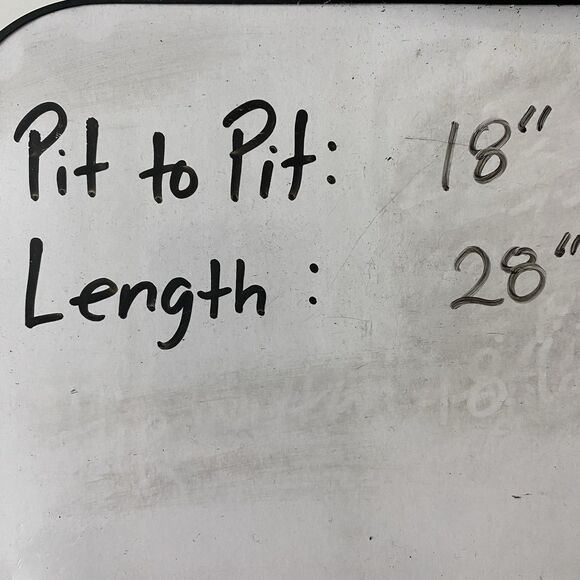 Pit to Pit: 18"
Length : 28"